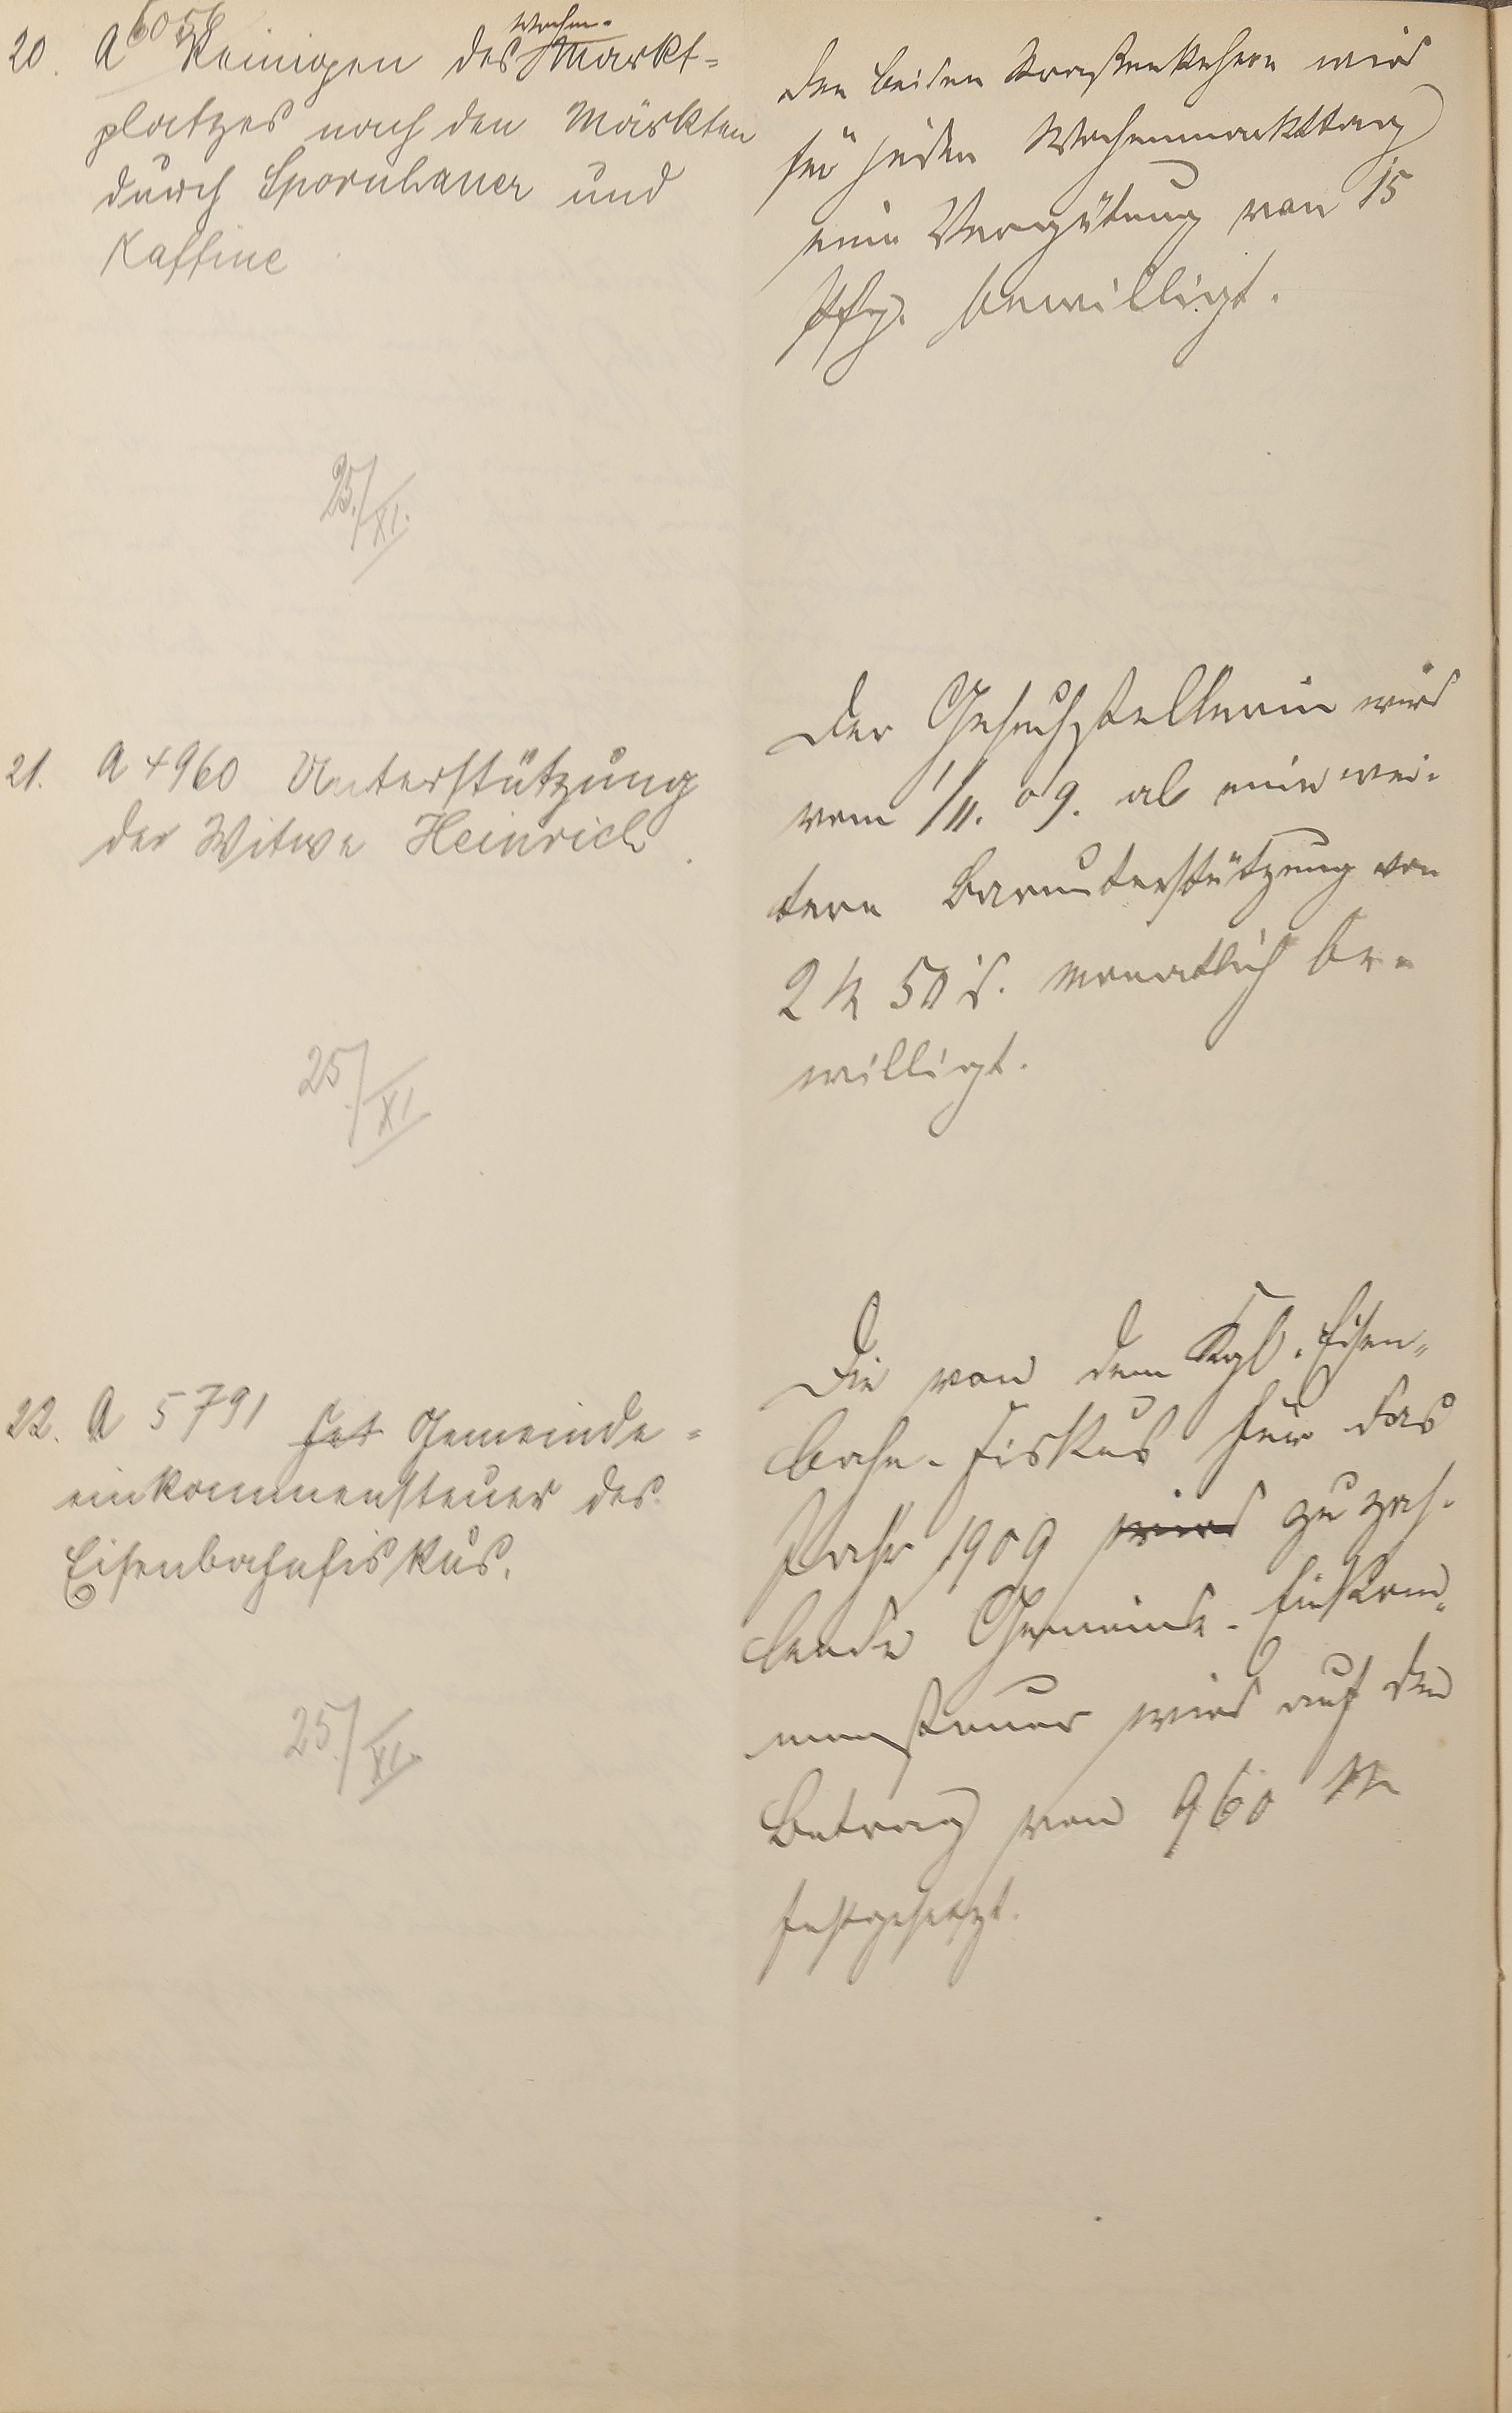 20. A 6056 Reinigen des Wochen-Markt=
platzes nach den Märkten
durch Spornhauer und
Kaffine
25./XI.
Den beiden Straßenkehrern wird
für jeden Wochenmarkttag
eine Vergütung von 15
Pfg. bewilligt.
21. A 4960 Unterstützung
der Witwe Heinrich.
25./XI.
Der Gesuchstellerin wird
vom 1/11. 09. ab eine wei-
tere Barunterstützung von
2 M 50 monatlich be-
willigt.
22. A 5791 Gemeinde=
einkommensteuer des
Eisenbahnfiskus.
25./XI.
Die von dem Kgl. Eisen-
bahn-Fiskus für das
Jahr 1909 wird zu zah-
lende Gemeinde-Einkom-
mensteuer wird auf den
Betrag von 960 M
festgesetzt.